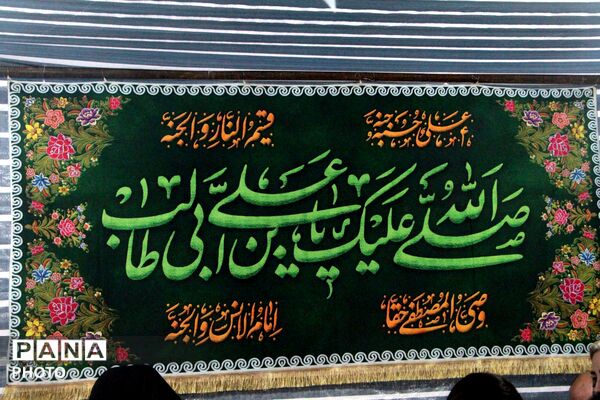 علی حبه جنة
قسیم النار و الجنة
صلی الله علیک یا علی بن ابی طالب
وصی المصطفی حقا
امام الانس و الجنة
PANA
PHOTO
PANA
PHOTO